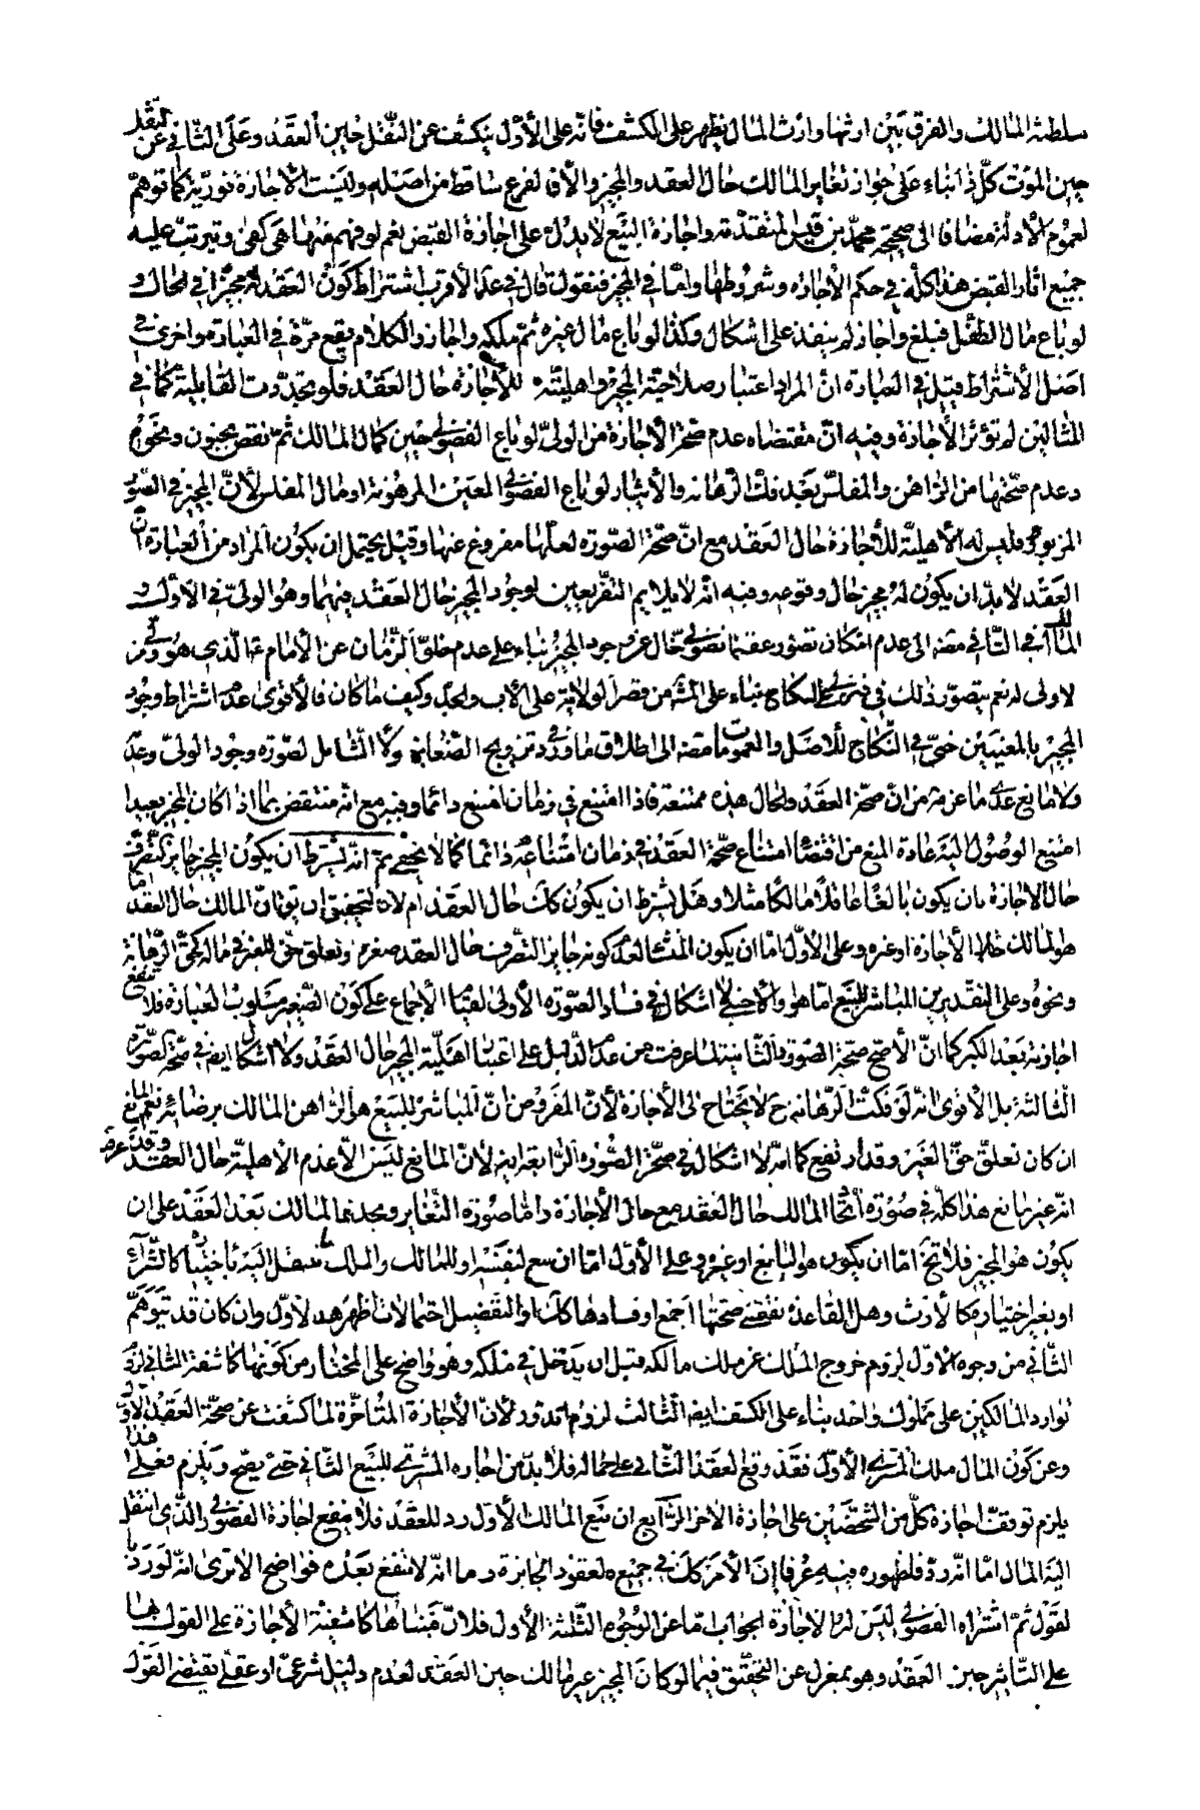 سلطنة المالك والفرق بين ارثها وارث المال يظهر على الكشف فانه على الأول ينكشف عن النقل حين العقد وعلى الثاني عن النقل
حين الموت كل ذا بناء على جواز تغاير المالك حال العقد والمجيز والا فالفرع ساقط من اصله وليست الاجازة فورية كما توهم
لعموم الأدلة مضافا الى صحيحة محمد بن قيس المتقدمة واجازة البيع لا يدل على اجازة القبض نعم لو فهم منها هي كفى ويترتب عليه
جميع اثار القبض هذا كله في حكم الأجازة وشروطها واما في المجيز فنقول قال في عد الأقرب اشتراط كون العقد له مجيزا في الحال و
لو باع مال الطفل فبلغ واجاز لم ينفذ على اشكال وكذا لو باع مال غيره ثم ملكه واجاز والكلام يقع مرة في العبارة واخرى في
اصل الأشتراط قيل في العبارة ان المراد اعتبار صلاحية المجيز واهليته للأجازة حال العقد فلو تجددت القابلية كما في
المثالين لم تؤثر الأجازة وفيه ان مقتضاه عدم صحة الأجازة من الولي لو باع الفضولي حين كمال المالك ثم نقص بجنون ونحوه
وعدم صحتها من الراهن والمفلس بعد فك الرهانة والأيسار لو باع الفضولي العين المرهونة او مال المفلس لأن المجيز في الصور
المزبورة ليس له الأهلية للأجازة حال العقد مع ان صحة الصورة لعلها مفروغ عنها وقيل يحتمل ان يكون المراد من العبارة ان
العقد لا بد ان يكون له مجيز حال وقوعه وفيه انه لا يلايم التفريعين لوجود المجيز حال العقد فيهما وهو الولي في الأول و
المالك في الثاني مضافا الى عدم امكان تصور عقد فضولي خال عن وجود المجيز بناء على عدم خلو الزمان عن الأمام ع الذي هو ولي من
لا ولي له نعم يتصور ذلك في فضولي النكاح بناء على المشهور من قصر الولاية على الأب والجد وكيف ما كان فالأقوى عدم اشتراط وجود
المجيز بالمعنيين حتى في النكاح للأصل والعمومات مضافا الى اطلاق ما ورد في تزويج الصغار الشامل لصورة وجود الولي وعدمه
ولا مانع عدا ما عن من ان صحة العقد والحال هذه ممتنعة فاذا امتنع في زمان امتنع دائما وفيه مع انه منتقض بما اذا كان المجيز بعيدا
امتنع الوصول اليه عادة المنع من اقتضاء امتناع صحة العقد في زمان امتناعه دائما كما لا يخفى ثم انه يشترط ان يكون المجيز جايز التصرف
حال الاجازة بان يكون بالغا عاقلا مالكا مثلا وهل يشترط ان يكون كذلك حال العقد ام لا التحقيق ان يق ان المالك حال العقد اما
هو المالك حال الأجازة او غيره وعلى الأول اما ان يكون المنشأ لعدم كونه جايز التصرف حال العقد صغره وتعلق حق الغير في ماله كحق الرهانة
ونحوه وعلى التقديرين المباشر للبيع اما هو والأجنبي لا اشكال في فساد الصورة الأولى لقيام الأجماع على كون الصغير مسلوب العبارة فلا تنفع
اجازته بعد الكبر كما ان الأصح صحة الصورة الثانية لما عرفت من عدم الدليل على اعتبار اهلية المجيز حال العقد ولا اشكال ايضا في صحة الصورة
الثالثة بل الأقوى انه لو فكت الرهانة ح لا يحتاج الى الأجازة لأن المفروض ان المباشر للبيع هو الراهن المالك برضائه نعم المانع
ان كان تعلق حق الغير وقد ارتفع كما انه لا اشكال في صحة الصورة الرابعة ايضا لأن المانع ليس الا عدم الأهلية حال العقد وقد عرفت
انه غير مانع هذا كله في صورة اتحاد المالك حال العقد مع حال الأجازة واما صورة التغاير وتجدد المالك بعد العقد على ان
يكون هو المجيز فلا تخ اما ان يكون هو البايع او غيره وعلى الأول اما ان يبيع لنفسه او للمالك والملك ينتقل اليه باختياره كالشراء
او بغير اختياره كالأرث وهل القاعدة تقتضي صحتها اجمع او فسادها كذلك او التفصيل احتمالات اظهرها الأول وان كان قد يتوهم
الثاني من وجوه الأول لزوم خروج الملك عن ملك مالكه قبل ان يدخل في ملكه وهو واضح على المختار من كونها كاشفة الثاني لزوم
توارد المالكين على مملوك واحد بناء على الكشف ايضا الثالث لزوم الدور لأن الأجازة المتاخرة لما كشفت عن صحة العقد الأول
وعن كون المال ملك المشترى الأول فقد وقع العقد الثاني على ماله فلا بد من اجازة المشترى للبيع الثاني حتى يصح ويلزم فعلى هذا
يلزم توقف اجازة كل من الشخصين على اجازة الأخر الرابع ان بيع المالك الأول رد للعقد فلا ينفع اجازة الفضولي الذي انتقل
اليه المال اما انه رد فلظهوره فيه عرفا اذ الأمر كذلك في جميع العقود الجايزة واما انه لا تنفع بعده فواضح الا ترى انه لو رد
لقول ثم اشتراه الفضولي ليس له الاجازة الجواب اما عن الوجوه الثلثة الأول فلأن مبناها كاشفية الأجازة على القول بها
على التاثير حين العقد وهو بمعزل عن التحقيق فيما لو كان المجيز غير مالك حين العقد لعدم دليل شرعي او عقلي يقتضي القول